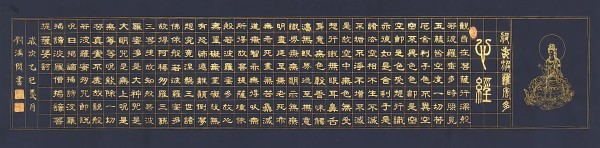 般若波羅蜜多
心經
觀自在菩薩行深般
若波羅蜜多時照見
五蘊皆空度一切苦
厄舍利子色不異空
空不異色色即是空
空即是色受想行識
亦復如是舍利子是
諸法空相不生不滅
不垢不淨不增不減
是故空中無色無受
想行識無眼耳鼻舌
身意無色聲香味觸
法無眼界乃至無意
識界無無明亦無無
明盡乃至無老死亦
無老死盡無苦集滅
道無智亦無得以無
所得故菩提薩埵依
般若波羅蜜多故心
無罣礙無罣礙故無
有恐怖遠離顛倒夢
想究竟涅槃三世諸
佛依般若波羅蜜多
故得阿耨多羅三藐
三菩提故知般若波
羅蜜多是大神咒是
大明咒是無上咒是
無等等咒能除一切
苦真實不虛故說般
若波羅蜜多咒即說
咒曰揭諦揭諦波羅
揭諦波羅僧揭諦菩
提薩婆訶
歲次乙巳月
書